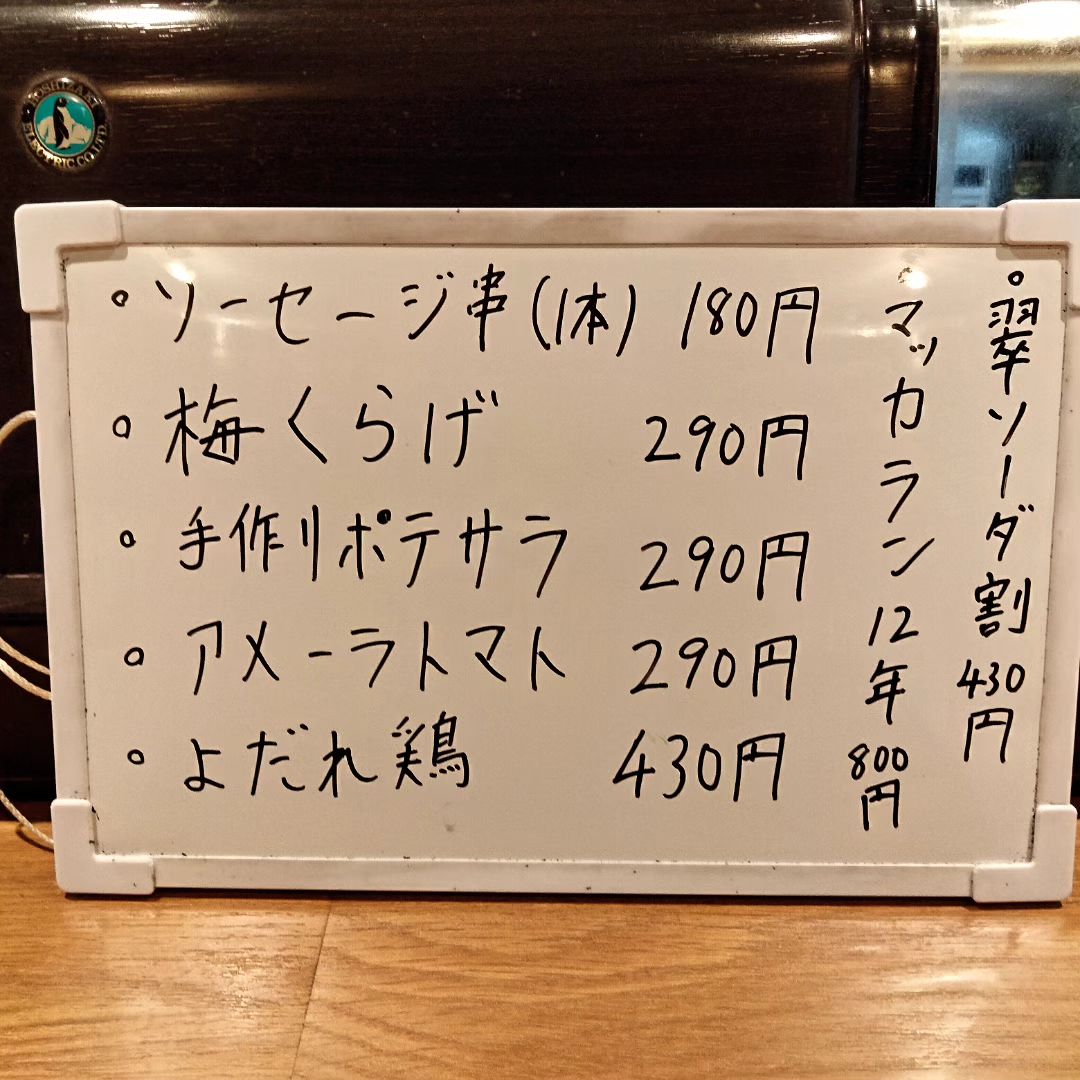 HOSHIZAKI ELECTRIC CO.LTD.
・ソーセージ串(1本) 180円
・梅くらげ 290円
・手作りポテサラ 290円
・アメーラトマト 290円
・よだれ鶏 430円
・翠ソーダ割 430円
・マッカラン12年 800円